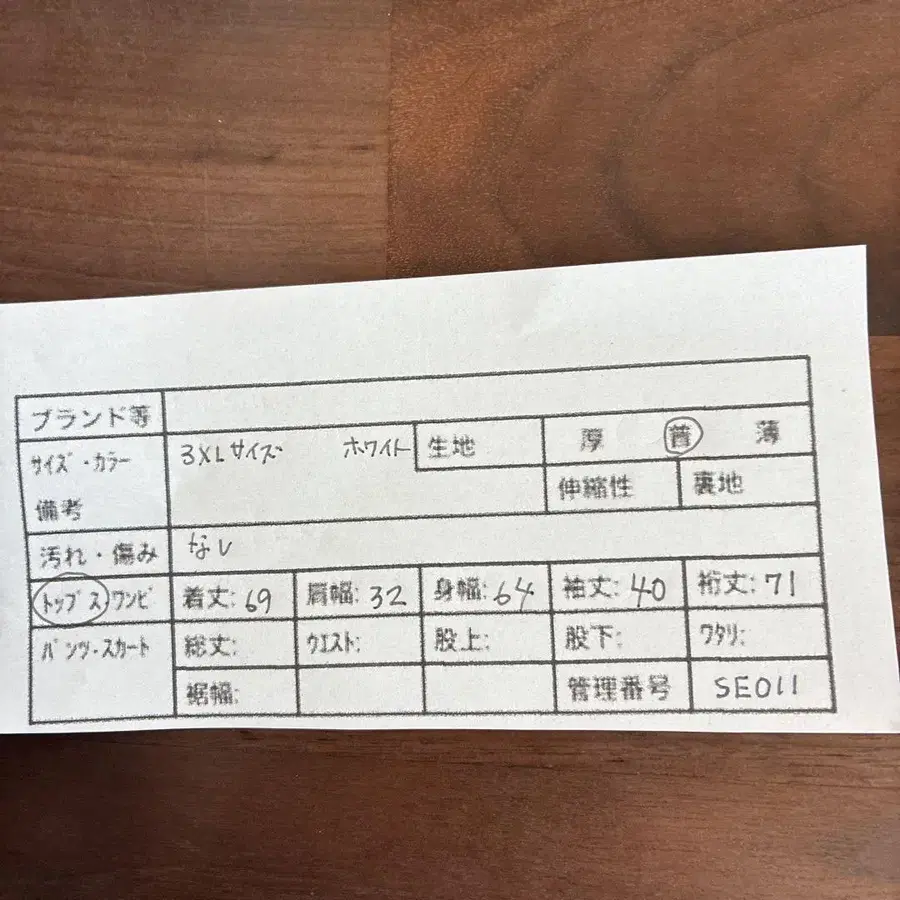 ブランド等
サイズ・カラー 3XLサイズ ホワイト 生地 厚 普 薄
備考 伸縮性 裏地
汚れ・傷み なし
トップス ワンピ 着丈: 69 肩幅: 32 身幅: 64 袖丈: 40 裄丈: 71
パンツ・スカート 総丈: ウエスト: 股上: 股下: ワタリ:
裾幅: 管理番号 SE011